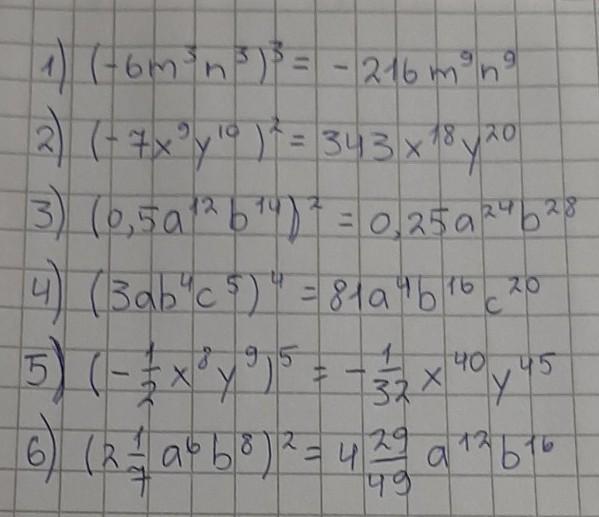 1) (-6m³n³)³ = -216m⁹n⁹
2) (-7x⁹y¹⁰)² = 343x¹⁸y²⁰
3) (0,5a¹²b¹⁴)² = 0,25a²⁴b²⁸
4) (3ab⁴c⁵)⁴ = 81a⁴b¹⁶c²⁰
5) (-1/2 x⁸y⁹)⁵ = -1/32 x⁴⁰y⁴⁵
6) (2 1/7 a⁶b⁸)² = 4 29/49 a¹²b¹⁶